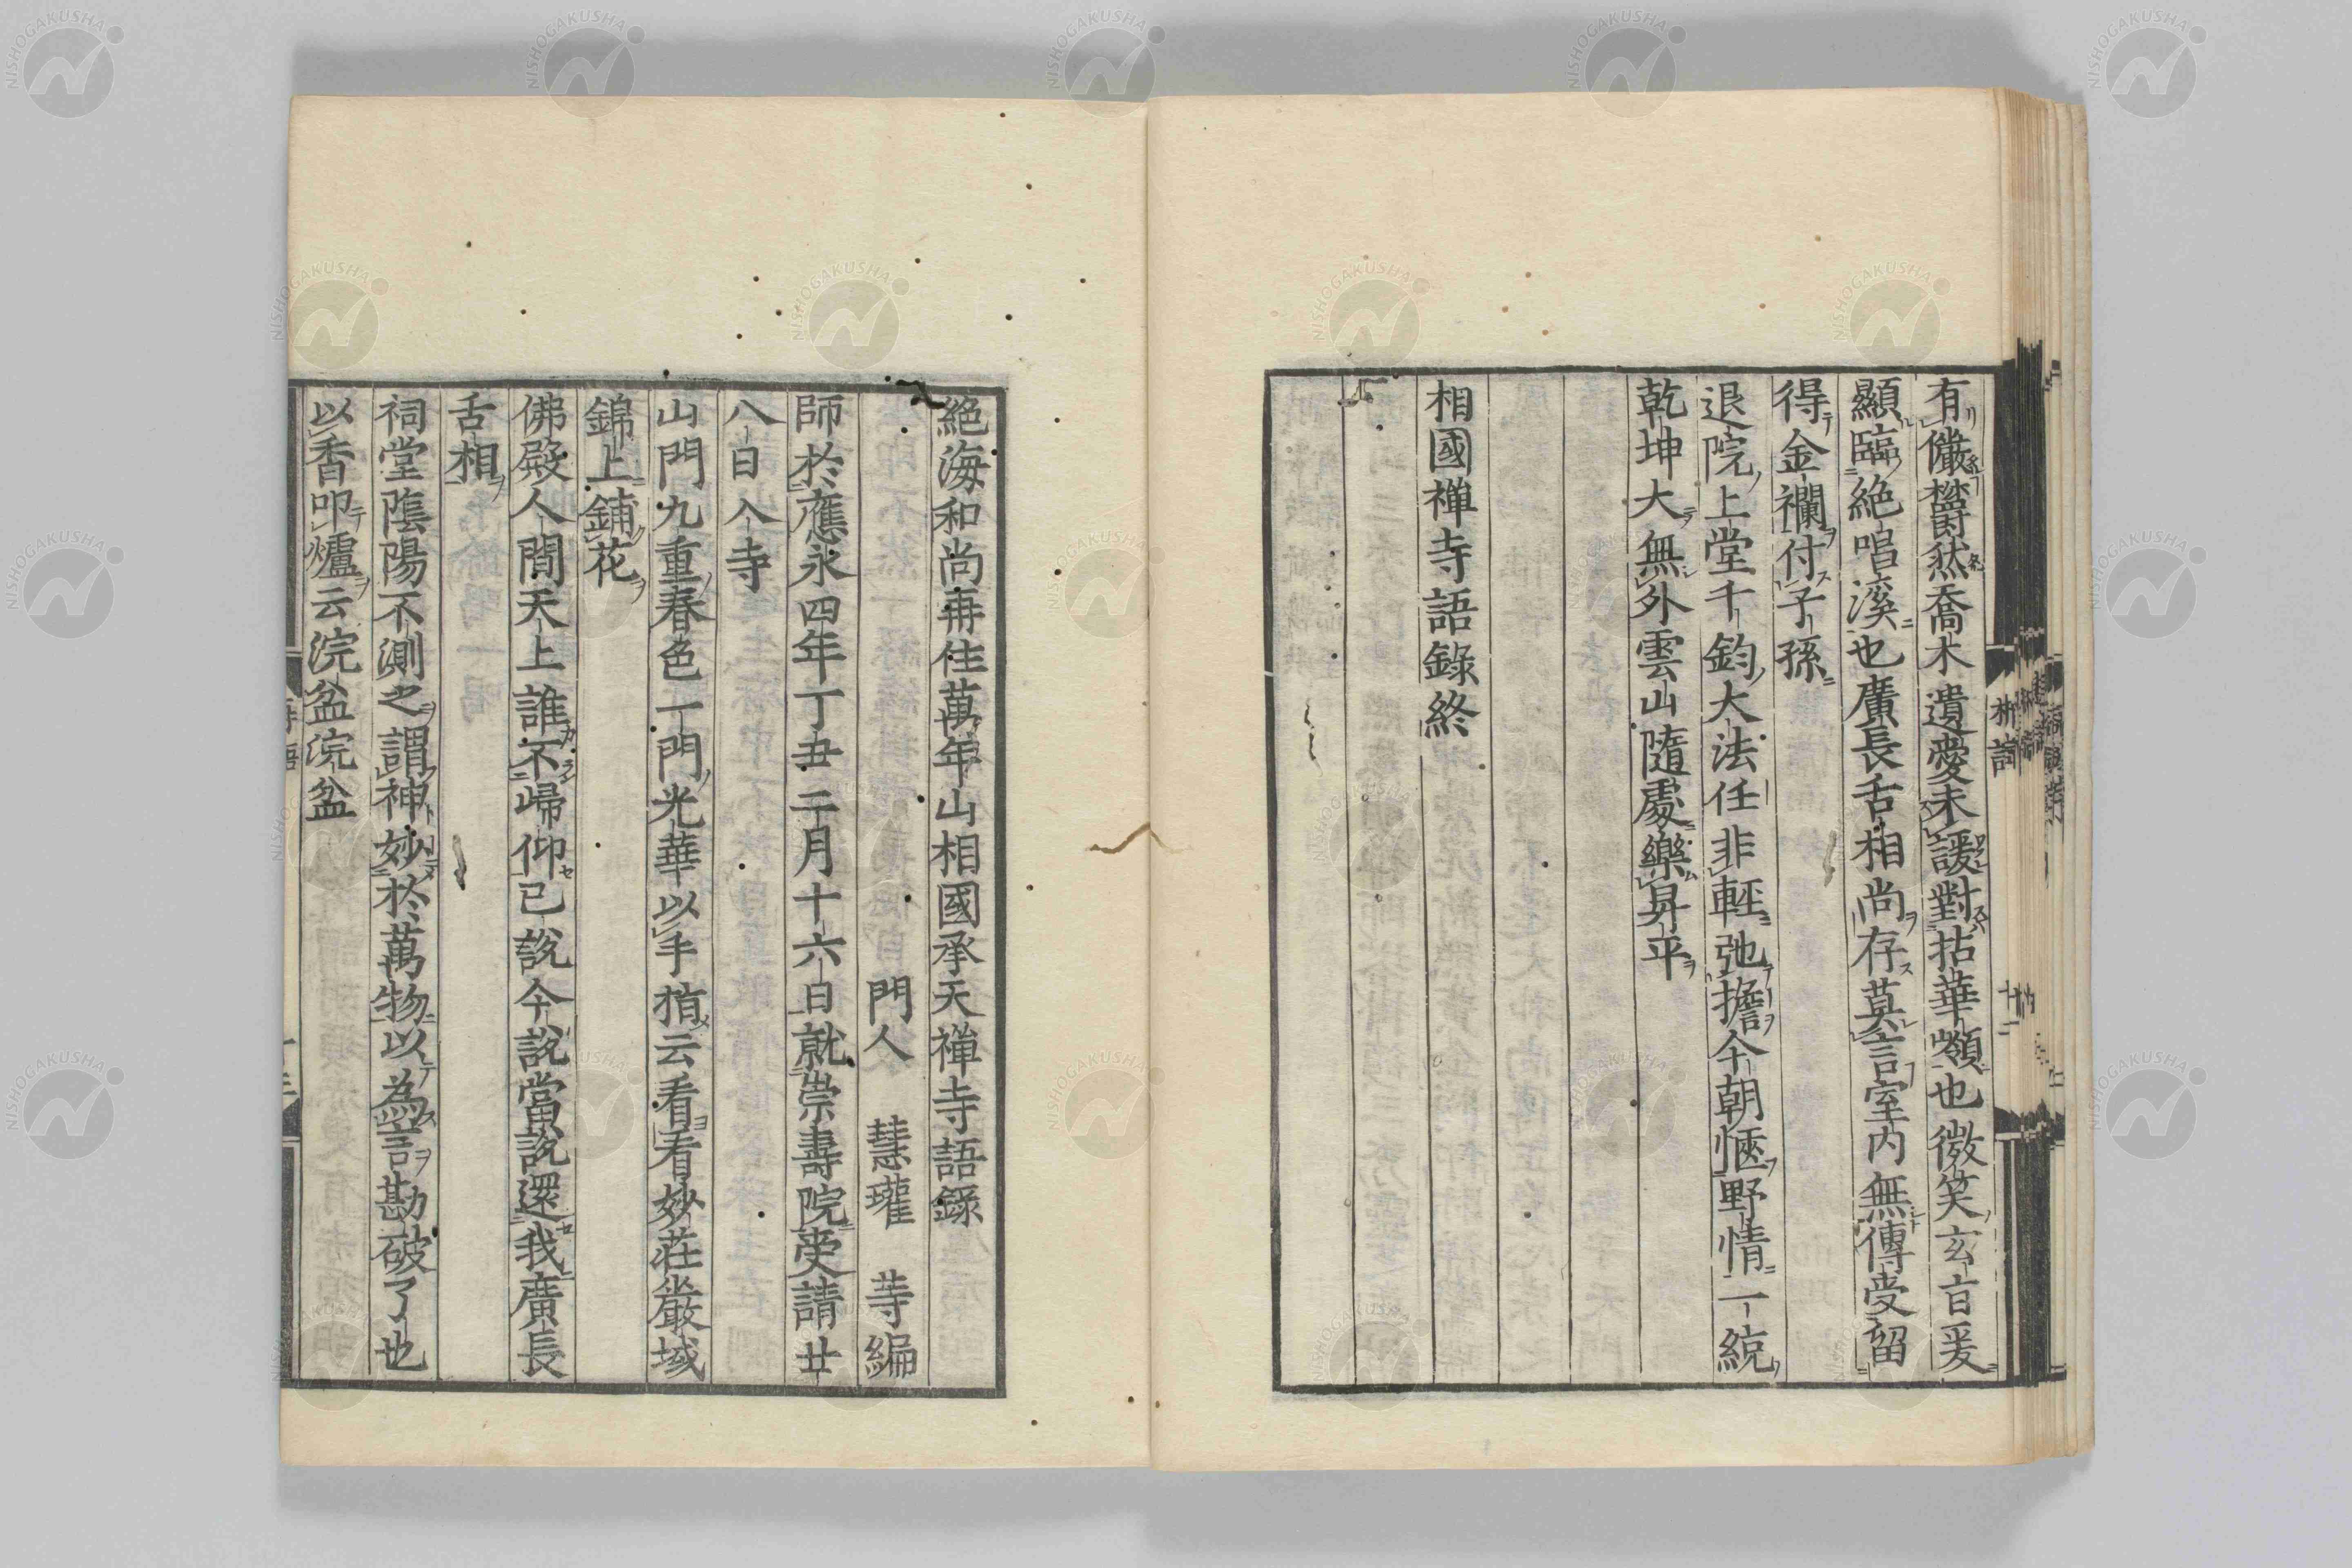 有儼欝然喬木遺愛未諼對拈華嶺也微笑玄旨爰
顯臨絶唱溪也廣長舌相尚存莫言室内無傳受留
得金襴付子孫
退院上堂千鈞大法任非輕弛擔今朝愜野情一統
乾坤大無外雲山隨處樂昇平
相國禪寺語録終
絶海和尚再住萬年山相國承天禪寺語録
門人 慧瓘 等編
師於應永四年丁丑二月十六日就崇壽院受請廿
八日入寺
山門九重春色一門光華以手指云看看妙莊嚴域
錦上鋪花
佛殿人間天上誰不歸仰已説今説當説還我廣長
舌相
祠堂陰陽不測之謂神妙於萬物以為言勘破了也
以香叩爐云浣盆浣盆
NISHOGAKUSHA